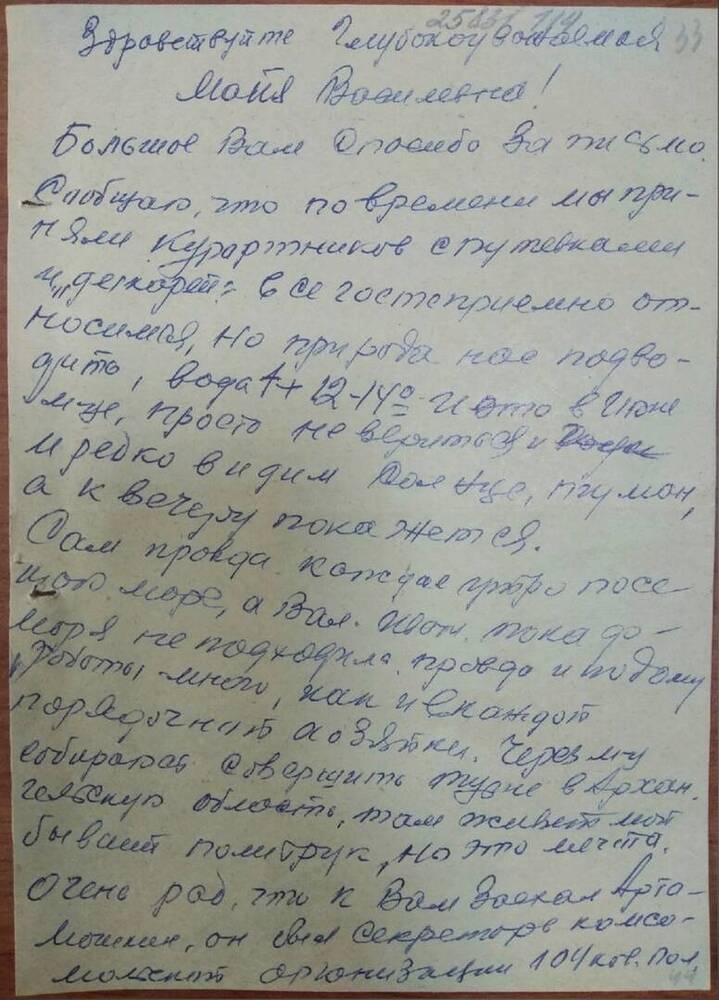 33
Здравствуйте Глубокоуважаемая
Майя Васильевна!
Большое Вам Спасибо за письмо.
Сообщаю, что повремени мы при-
няли Курартников с путевками
и „ все гостеприемно от-
носимся, но природа нас подво-
дить, вода t + 12-14° и это в Июне
м-це, просто не вериться и
и редко видим Солнце, туман,
а к вечеру покажется.
Сам правда каждае утро посе
щаю море, а Вал. пока до-
моря не подходила, правда и по дому
работы много, как и в каждой
порядочной хозяйки. Через м-ц
собираюсь совершить в Архан.
гельскую область, там живет мой
бывший политрук, но это мечта.
Очень рад, что к Вам Заехал Арта-
мошкин, он был Секретарь комсо-
мольской организации 104 кав. пол